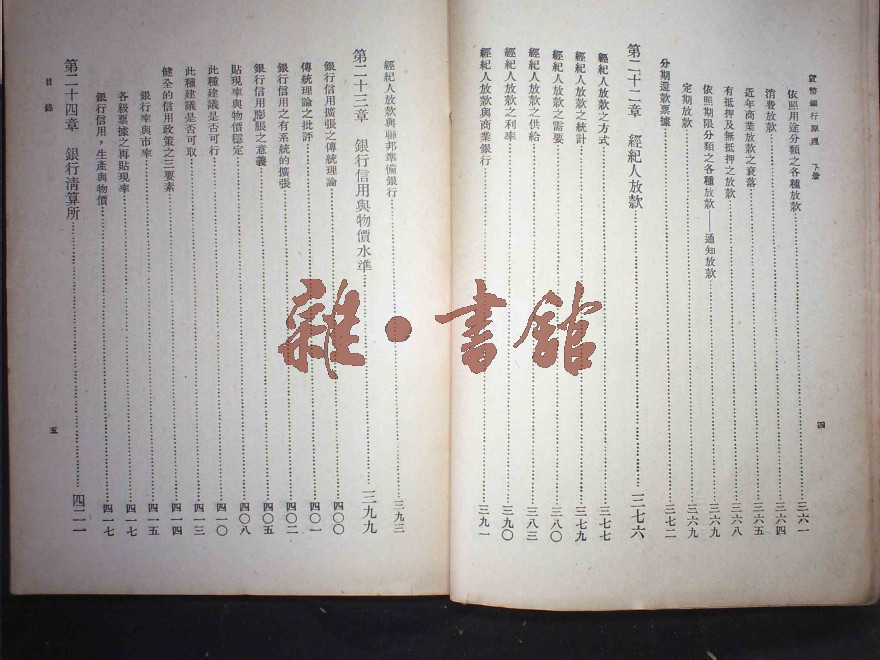 貨幣銀行原理 下册 四
依照用途分類之各種放款 三六一
消費放款 三六四
近年商業放款之衰落 三六五
有抵押及無抵押之放款 三六八
依照期限分類之各種放款——通知放款 三六九
定期放款 三六九
分期還款票據 三七二
第二十二章 經紀人放款 三七六
經紀人放款之方式 三七七
經紀人放款之統計 三七九
經紀人放款之需要 三八〇
經紀人放款之供給 三八三
經紀人放款之利率 三九〇
經紀人放款與商業銀行 三九一
經紀人放款與聯邦準備銀行 三九三
第二十三章 銀行信用與物價水準 三九九
銀行信用擴張之傳統理論 四〇〇
傳統理論之批評 四〇一
銀行信用之有系統的擴張 四〇二
銀行信用膨脹之意義 四〇五
貼現率與物價穩定 四〇八
此種建議是否可行 四一〇
此種建議是否可取 四一三
健全的信用政策之三要素 四一四
銀行率與市率 四一五
各級票據之再貼現率 四一七
銀行信用，生產與物價 四一七
第二十四章 銀行清算所 四二一
目錄 五
雜·書館